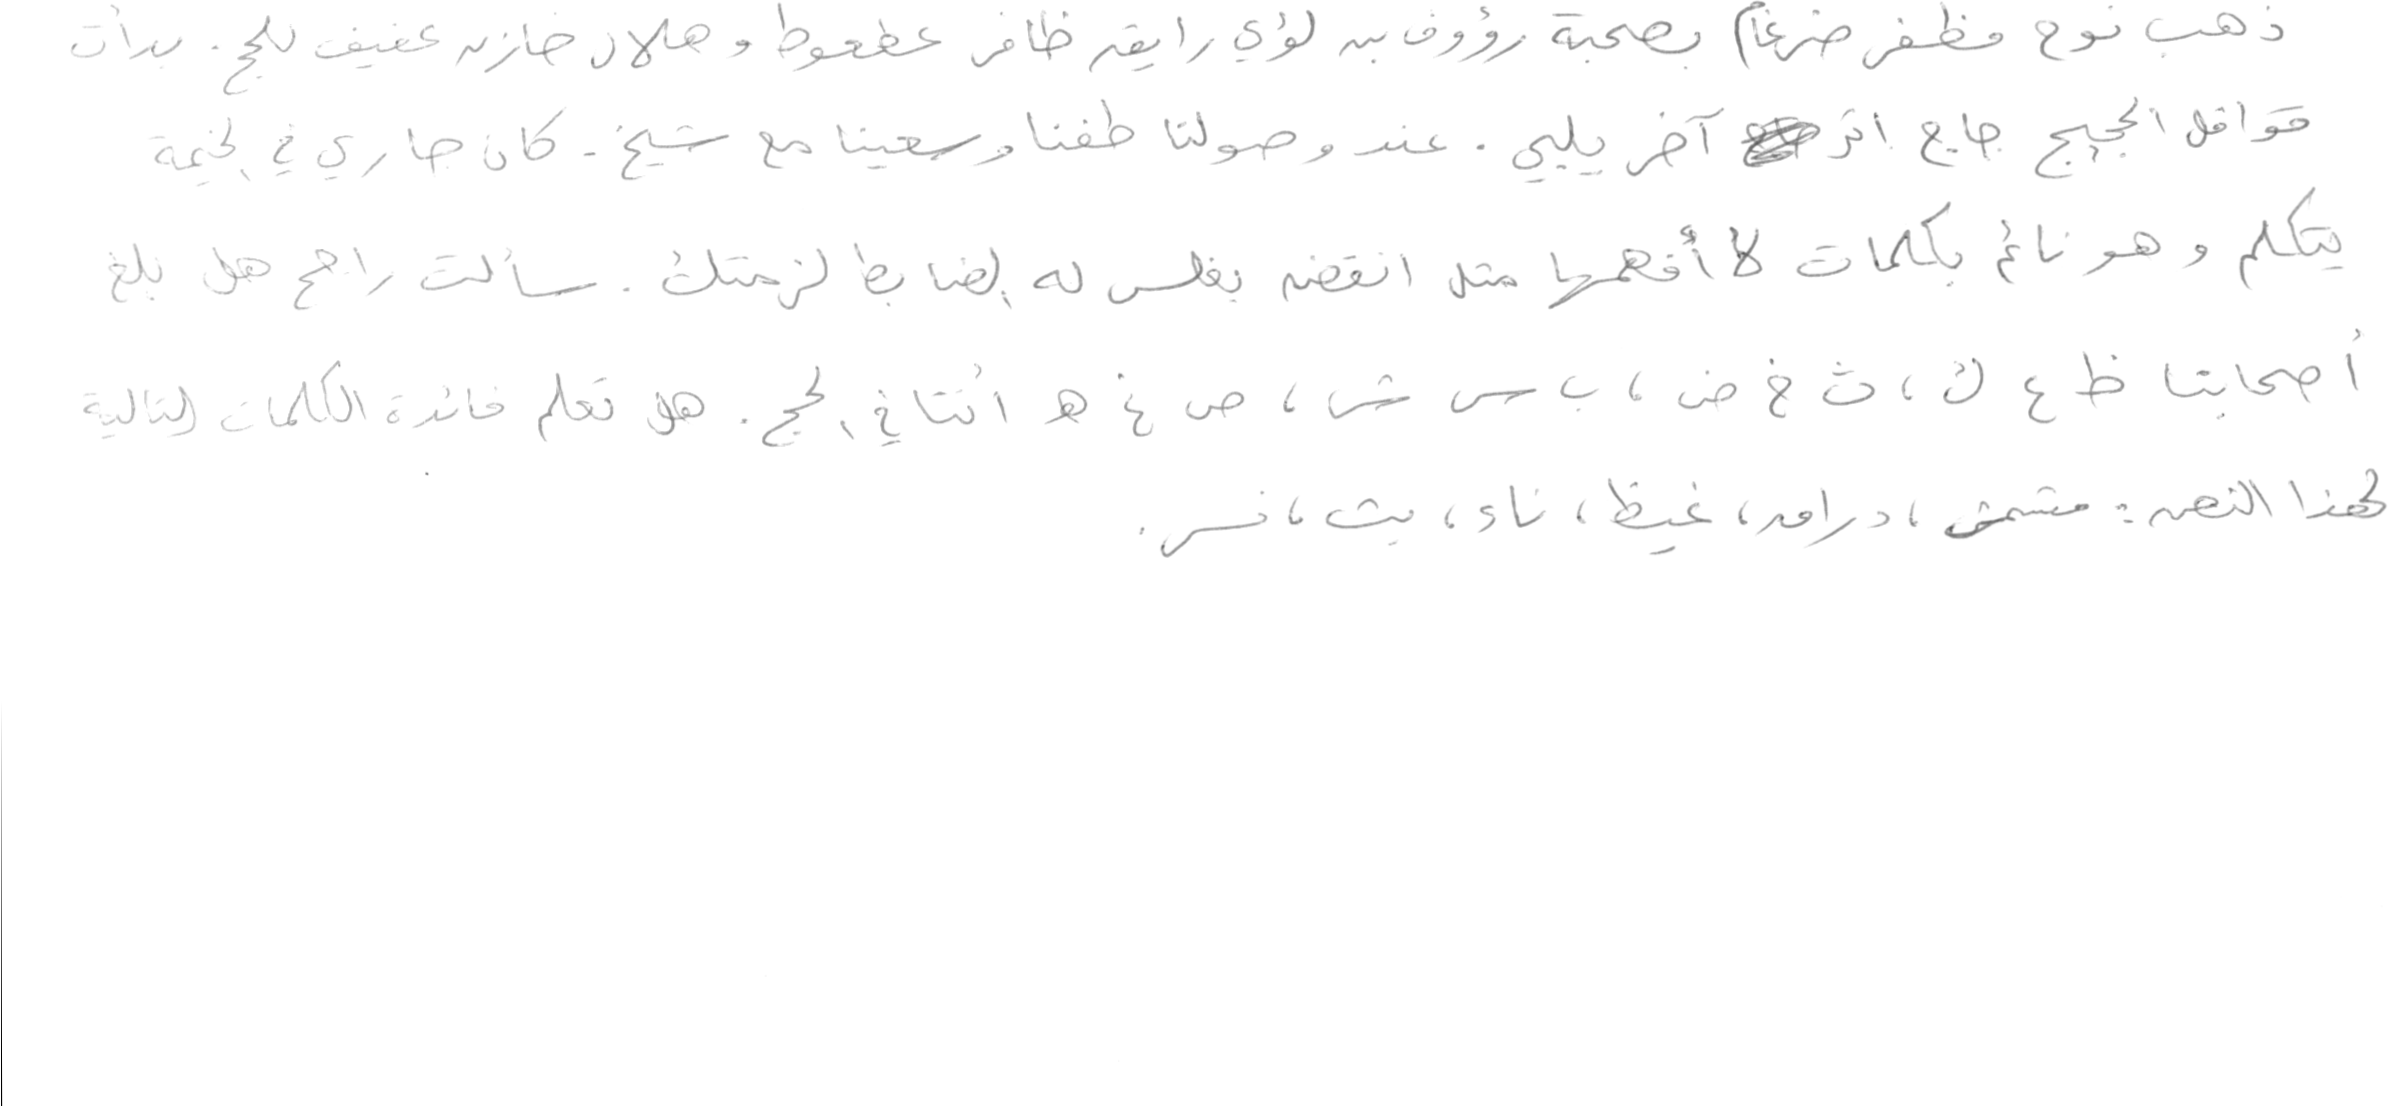 ذهب نوح مظفر ضرغام بصحبة رؤوف بن لؤي رايق ظافر عطعوط و هلال خازن عفيف للحج. بدأت
قوافل الحجيج حاج اثر آخر يلبي. عند وصولنا طفنا وسعينا مع شيخ. كان جاري في الخيمة
يتكلم وهو نائم بكلمات لا أفهمها مثل انقض يغلس له الضابط لزحمتك. سألت راجح هل بلغ
أصحابنا ظ ع ك، ث خ ض، ب س ش، ص غ ه اننا في الحج. هل تعلم فائدة الكلمات التالية
لهذا النص: مشمش، دراق، غيظ، ناء، بث، نسر.